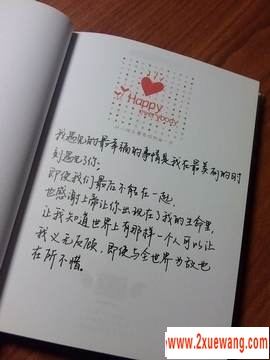 Happy
everybody
我遇见的最幸福的事情是我在最美丽的时
刻遇见了你.
即使我们最后不能在一起,
也感谢上帝让你出现在了我的生命里,
让我知道世界上有那样一个人可以让
我义无反顾,即使与全世界为敌也
在所不惜.
www.2xuewang.com